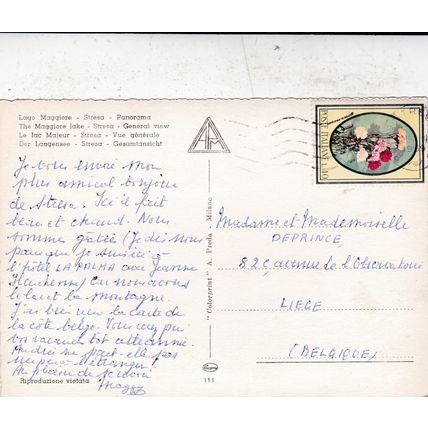 Lago Maggiore - Stresa - Panorama
The Maggiore lake - Stresa - General view
Le lac Majeur - Stresa - Vue générale
Der Langensee - Stresa - Gesamtansicht
Je vous envoie mon
plus amical bonjour
de Stresa. Ici il fait
beau et chaud. Nous
sommes gâtées (Je dis nous
parce que je suis ici à
l'hôtel LA PALMA avec Jeanne
) Car nous avons
le lac et la montagne.
J'ai bien reçu la carte de
la côte belge. Vous avez pris
vos vacances tôt cette année.
Andrée ne part-elle pas
à l'étranger?
Au plaisir de
Riproduzione vietata
"Colorprint" A. Preda - Milano
111
POSTE ITALIANE L.40
Madame et Mademoiselle
DEPRINCE
82C avenue de l'Observatoire
LIEGE
(BELGIQUE)